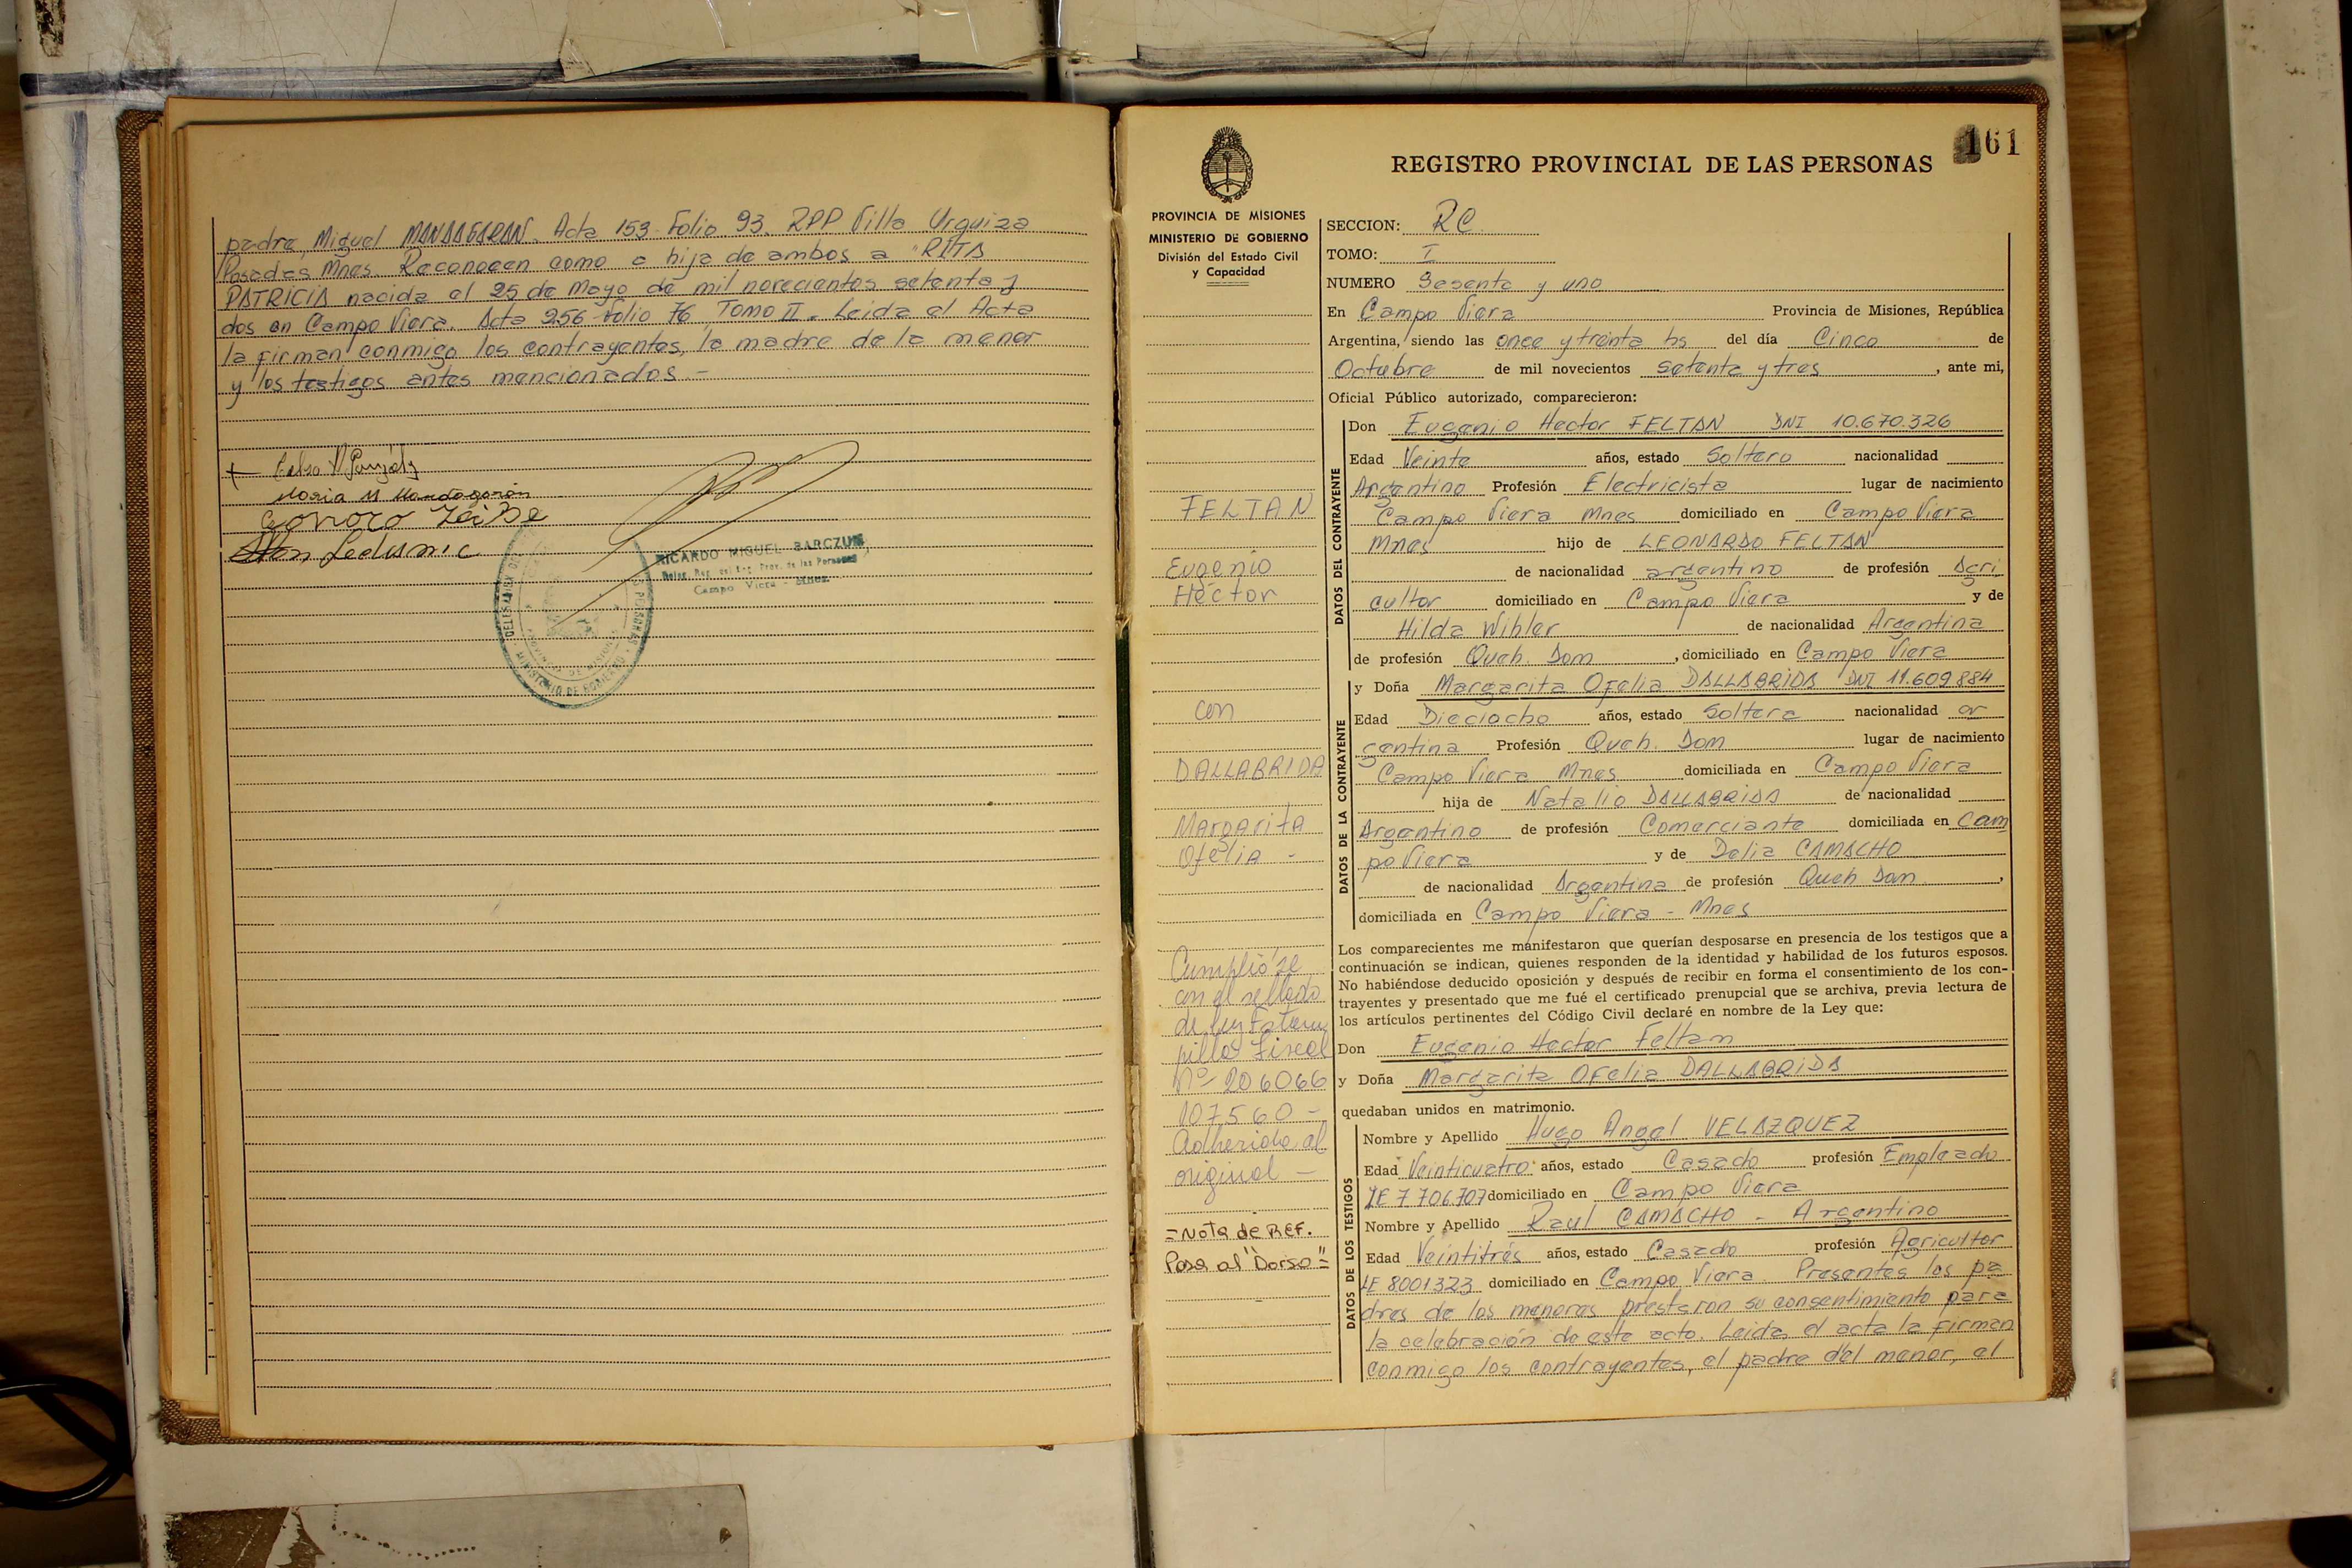 padre, Miguel MANDAGARAN. Acta 153 Folio 93. RPP Villa Urquiza
Posadas Mnes. Reconocen como a hija de ambos a "RITA
PATRICIA nacida el 25 de Mayo de mil novecientos setenta y
dos en Campo Viera. Acta 256 folio 76 Tomo II. Leida el Acta
la firman conmigo los contrayentes, la madre de la menor
y los testigos antes mencionados.-
Maria M Mandagarán
RICARDO MIGUEL BARCZUK
Deleg. Reg. del Reg. Prov. de las Personas
Campo Viera - Mnes.
MINISTERIO DE GOBIERNO
161
REGISTRO PROVINCIAL DE LAS PERSONAS
PROVINCIA DE MISIONES
MINISTERIO DE GOBIERNO
División del Estado Civil
y Capacidad
FELTAN
Eugenio
Héctor
con
DALLABRIDA
Margarita
Ofelia -
Cumplióse
con el sellado
de ley Estam
pillas Fiscal
Nº 206066
107560 -
Adherido al
original -
=Nota de REF.
Pasa al "Dorso"=
SECCION: RC.
TOMO: I
NUMERO Sesenta y uno
En Campo Viera Provincia de Misiones, República
Argentina, siendo las once y treinta hs del día Cinco de
Octubre de mil novecientos setenta y tres, ante mi,
Oficial Público autorizado, comparecieron:
DATOS DEL CONTRAYENTE
Don Eugenio Hector FELTAN DNI 10.670.326
Edad Veinte años, estado Soltero nacionalidad
Argentino Profesión Electricista lugar de nacimiento
Campo Viera Mnes domiciliado en Campo Viera
Mnes hijo de LEONARDO FELTAN
de nacionalidad argentino de profesión Agri
cultor domiciliado en Campo Viera y de
Hilda Wihler de nacionalidad Argentina
de profesión Queh. Dom, domiciliado en Campo Viera
DATOS DE LA CONTRAYENTE
y Doña Margarita Ofelia DALLABRIDA DNI 11.609.884
Edad Dieciocho años, estado Soltera nacionalidad ar
gentina Profesión Queh. Dom lugar de nacimiento
Campo Viera Mnes domiciliada en Campo Viera
hija de Natalio DALLABRIDA de nacionalidad
Argentino de profesión Comerciante domiciliada en Cam
po Viera y de Delia CAMACHO
de nacionalidad Argentina de profesión Queh Dom,
domiciliada en Campo Viera - Mnes
Los comparecientes me manifestaron que querían desposarse en presencia de los testigos que a
continuación se indican, quienes responden de la identidad y habilidad de los futuros esposos.
No habiéndose deducido oposición y después de recibir en forma el consentimiento de los con-
trayentes y presentado que me fué el certificado prenupcial que se archiva, previa lectura de
los artículos pertinentes del Código Civil declaré en nombre de la Ley que:
Don Eugenio Hector Feltan
y Doña Margarita Ofelia DALLABRIDA
quedaban unidos en matrimonio.
DATOS DE LOS TESTIGOS
Nombre y Apellido Hugo Angel VELAZQUEZ
Edad Veinticuatro años, estado Casado profesión Empleado
LE 7706.707 domiciliado en Campo Viera
Nombre y Apellido Raul CAMACHO - Argentino
Edad Veintitrés años, estado Casado profesión Agricultor
LE 8001323 domiciliado en Campo Viera. Presentes los pa
dres de los menores prestaron su consentimiento para
la celebración de este acto. Leida el acta la firman
conmigo los contrayentes, el padre del menor, el